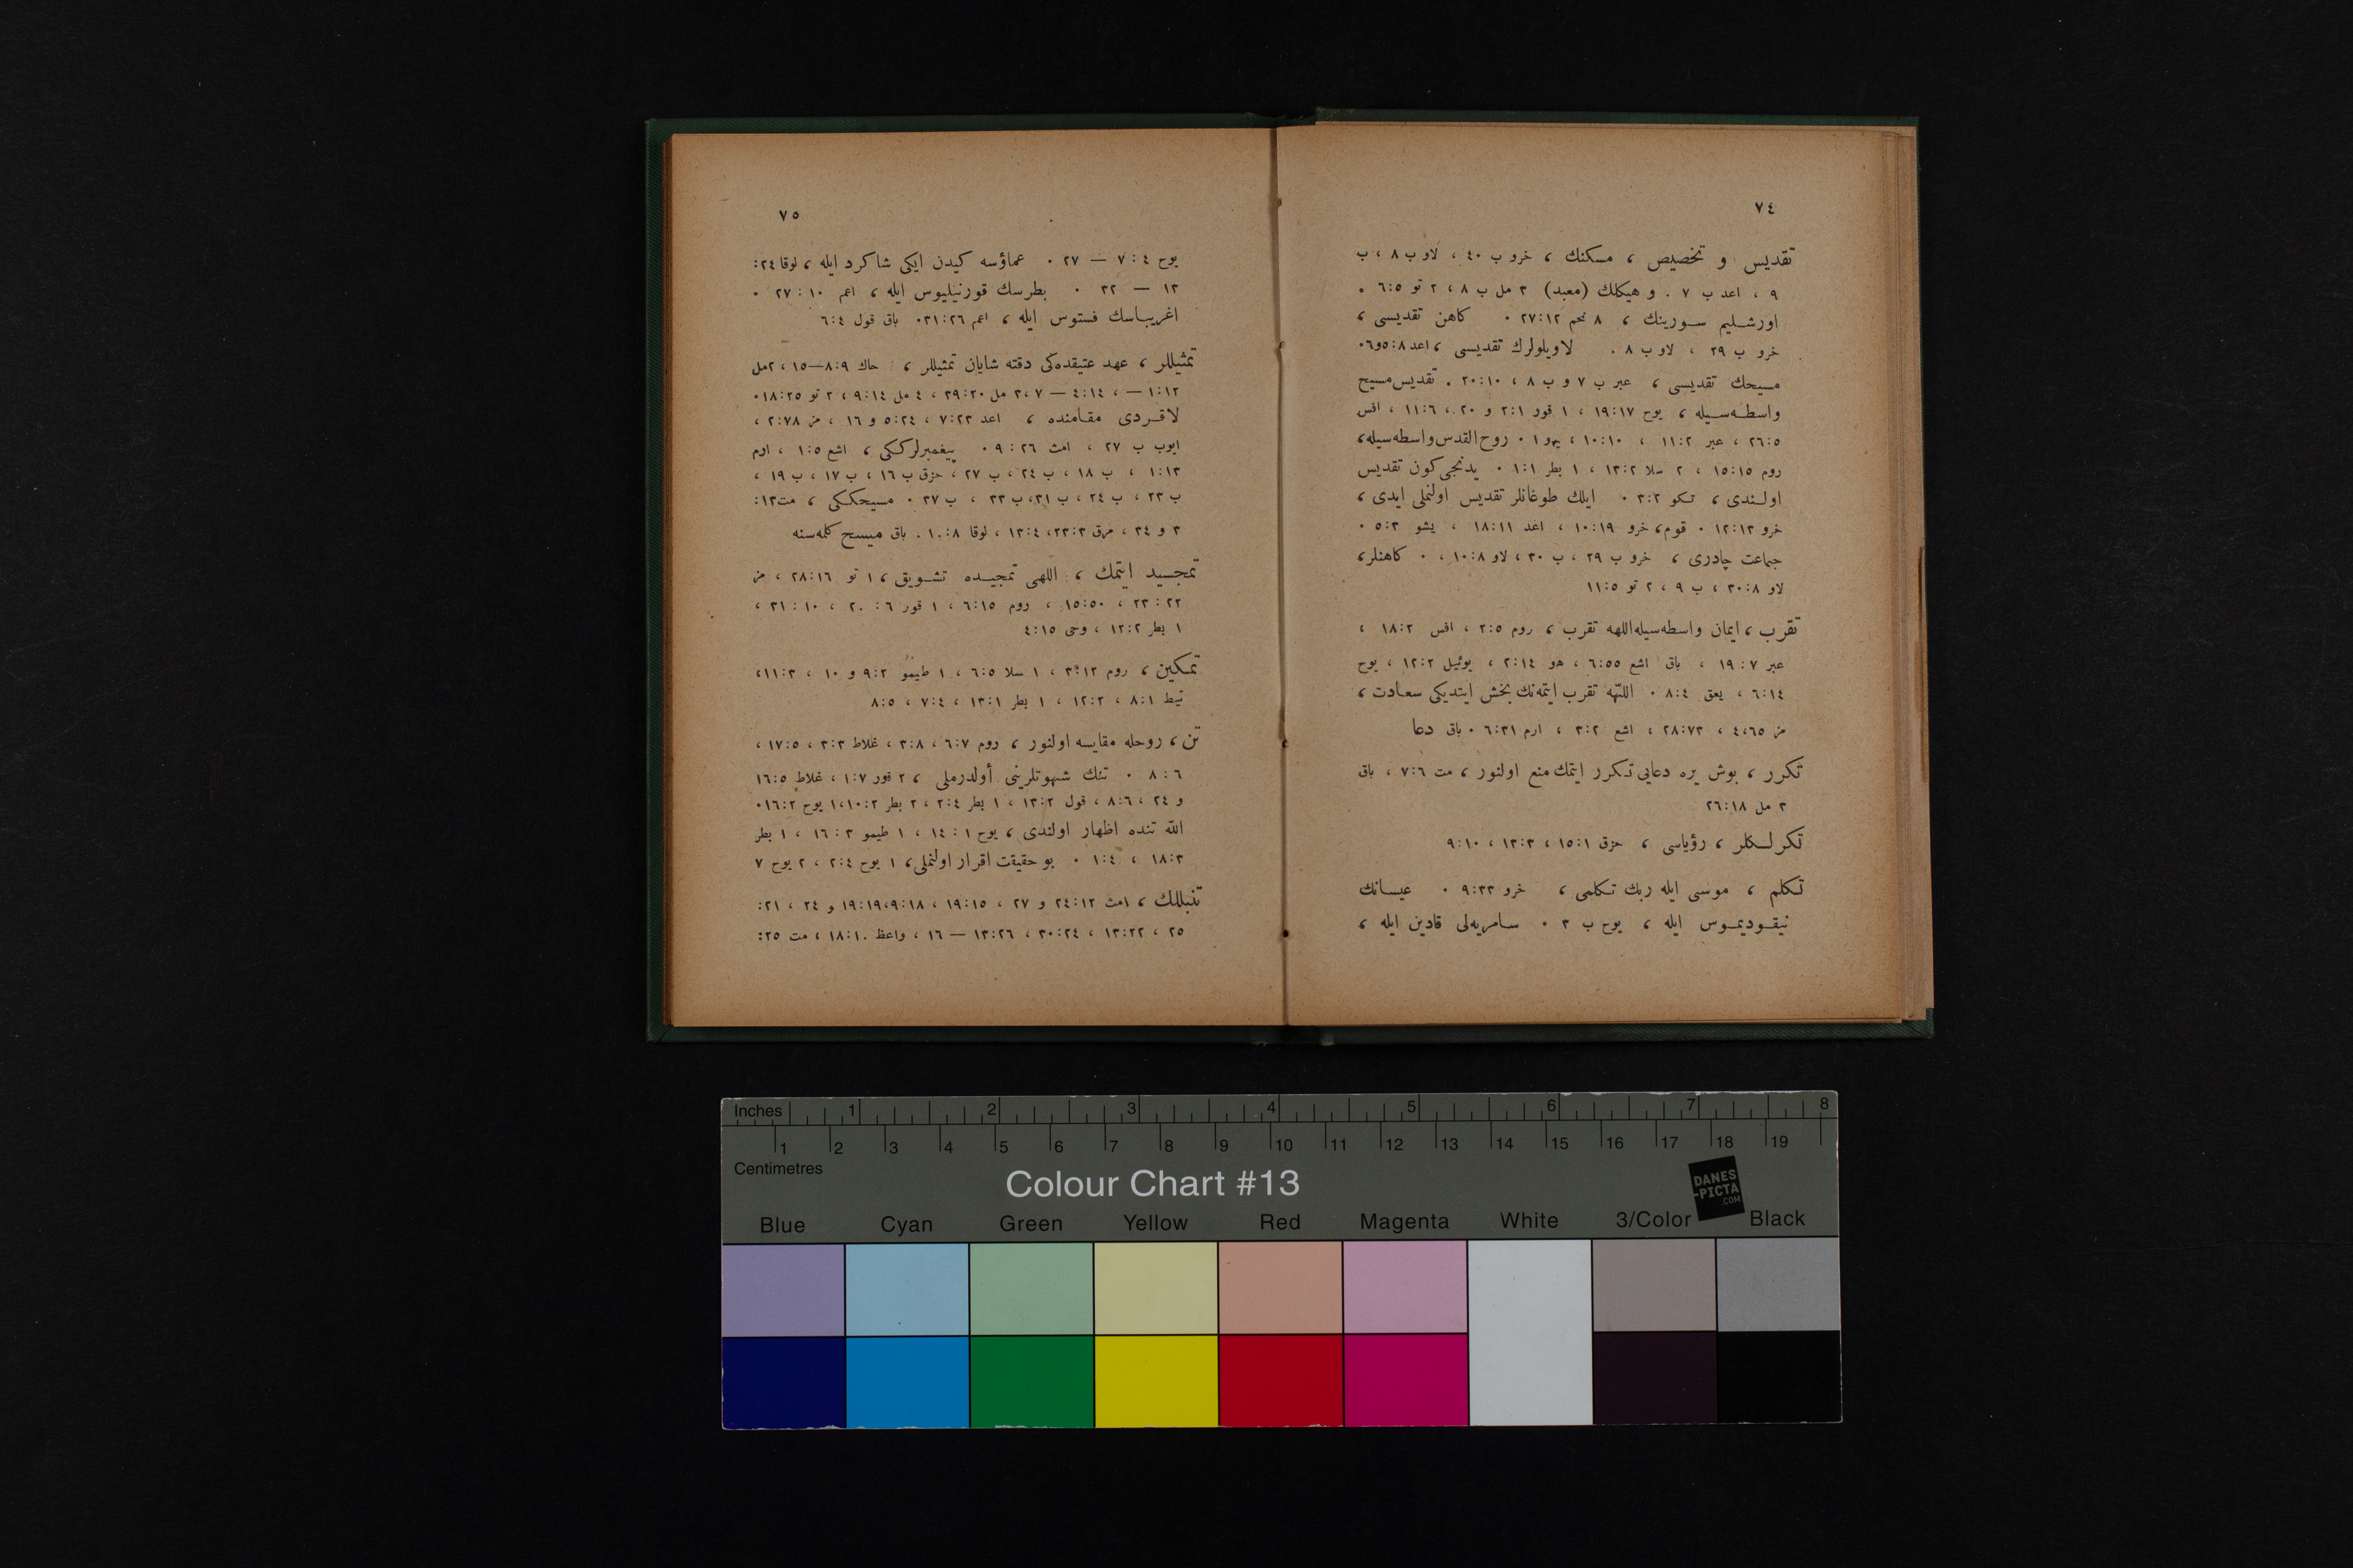 ٧٤
تقديس و تخصيص ، مسكنك ، خرو ب ٤٠ ، لاو ب ٨ ، ب
٩ ، اعد ب ٧ . و هيكلك (معبد) ٣ مل ب ٨ ، ٢ تو ٦:٥ .
اورشليم سورينك ، ٨ نحم ٢٧:١٢ . كاهن تقديسى ،
خرو ب ٢٩ ، لاو ب ٨ . لاويلولرك تقديسى ، اعد ٥:٨ و٦.
مسيحك تقديسى ، عبر ب ٧ و ب ٨ ، ٢٠:١٠ . تقديس مسيح
واسطه‌سيله ، يوح ١٩:١٧ ، ١ قور ٢:١ و ٢٠ ، ١١:٦ ، افس
٢٦:٥ ، عبر ١١:٢ ، ١٠:١٠ ، يهو ١ . روح القدس واسطه‌سيله ،
روم ١٥:١٥ ، ٢ سلا ١٣:٢ ، ١ بطر ١:١ . يدنجى كون تقديس
اولندى ، تكو ٣:٢ . ايلك طوغانلر تقديس اولنملى ايدى ،
خرو ١٢:١٣ . قوم ، خرو ١٠:١٩ ، اعد ١٨:١١ ، يشو ٥:٣ .
جماعت چادرى ، خرو ب ٢٩ ، ب ٣٠ ، لاو ١٠:٨ ، . كاهنلر ،
لاو ٣٠:٨ ، ب ٩ ، ٢ تو ١١:٥
تقرب ، ايمان واسطه‌سيله اللهه تقرب ، روم ٢:٥ ، افس ١٨:٢ ،
عبر ١٩:٧ ، باق اشع ٦:٥٥ ، هو ٢:١٤ ، يوئيل ١٢:٢ ، يوح
٦:١٤ ، يعق ٨:٤ . اللّهه تقرب ايتمه‌نك بخش ايتديكى سعادت ،
مز ٤،٦٥ ، ٢٨:٧٣ ، اشع ٣:٢ ، ارم ٦:٣١ . باق دعا
تكرر ، بوش يره دعايى تكرر ايتمك منع اولنور ، مت ٧:٦ ، باق
٣ مل ٢٦:١٨
تكرلكلر ، رؤياسى ، حزق ١٥:١ ، ١٣:٣ ، ٩:١٠
تكلم ، موسى ايله ربك تكلمى ، خرو ٩:٣٣ . عيسانك
نيقوديموس ايله ، يوح ب ٣ . سامريه‌لى قادين ايله ،
٧٥
يوح ٧:٤ — ٢٧ . عماؤسه كيدن ايكى شاكرد ايله ، لوقا ٢٤:
١٣ — ٣٢ . بطرسك قورنيليوس ايله ، اعم ٢٧:١٠ .
اغريپاسك فستوس ايله ، اعم ٣١:٢٦. باق قول ٦:٤
تمثيللر ، عهد عتيقده‌كى دقته شايان تمثيللر ، حاك ٨:٩—١٥ ، ٢مل
١:١٢ — ، ٤:١٤ — ٧ ، ٣ مل ٣٩:٢٠ ، ٤ مل ٩:١٤ ، ٢ تو ١٨:٢٥.
لاقردى مقامنده ، اعد ٧:٢٣ ، ٥:٢٤ و ١٦ ، مز ٢:٧٨ ،
ايوب ب ٢٧ ، امث ٩:٢٦ . پيغمبرلركى ، اشع ١:٥ ، ارم
١:١٣ ، ب ١٨ ، ب ٢٤ ، ب ٢٧ ، حزق ب ١٦ ، ب ١٧ ، ب ١٩ ،
ب ٢٣ ، ب ٢٤ ، ب ٣١، ب ٣٣ ، ب ٣٧ . مسيحككى ، مت١٣:
٣ و ٣٤ ، مرق ٢٣:٣، ١٣:٤ ، لوقا ١٠:٨ . باق ميسح كلمه‌سنه
تمجسيد ايتمك ، اللهى تمجيده تشويق ، ١ تو ٢٨:١٦ ، مز
٢٣:٢٢ ، ١٥:٥٠ ، روم ٦:١٥ ، ١ قور ٢٠:٦ ، ٣١:١٠ ،
١ بطر ١٢:٢ ، وحى ٤:١٥
تمكين ، روم ٣:١٢ ، ١ سلا ٦:٥ ، ١ طيمو ٩:٢ و ١٠ ، ١١:٣،
تيط ٨:١ ، ١٢:٢ ، ١ بطر ١٣:١ ، ٧:٤ ، ٨:٥
تن ، روحله مقايسه اولنور ، روم ٦:٧ ، ٣:٨ ، غلاط ٣:٣ ، ١٧:٥ ،
٨:٦ . تنك شهوتلرينى أولدرملى ، ٢ قور ١:٧ ، غلاط ١٦:٥
و ٢٤ ، ٨:٦ ، قول ١٣:٢ ، ١ بطر ٢:٤ ، ٢ بطر ١٠:٢،١ يوح ١٦:٢.
اللّه تنده اظهار اولندى ، يوح ١٤:١ ، ١ طيمو ١٦:٣ ، ١ بطر
١٨:٣ ، ١:٤ . بو حقيقت اقرار اولنملى ، ١ يوح ٢:٤ ، ٢ يوح ٧
تنبللك ، امث ٢٤:١٢ و ٢٧ ، ١٩:١٥ ، ٩:١٨،١٩:١٩ و ٢٤ ، ٢١:
٢٥ ، ١٣:٢٢ ، ٣٠:٢٤ ، ١٣:٢٦ — ١٦ ، واعظ ١٨:١٠ ، مت ٢٥:
Inches 1 2 3 4 5 6 7 8
1 2 3 4 5 6 7 8 9 10 11 12 13 14 15 16 17 18 19
Centimetres
Colour Chart #13
DANES
-PICTA
.COM
Blue Cyan Green Yellow Red Magenta White 3/Color Black